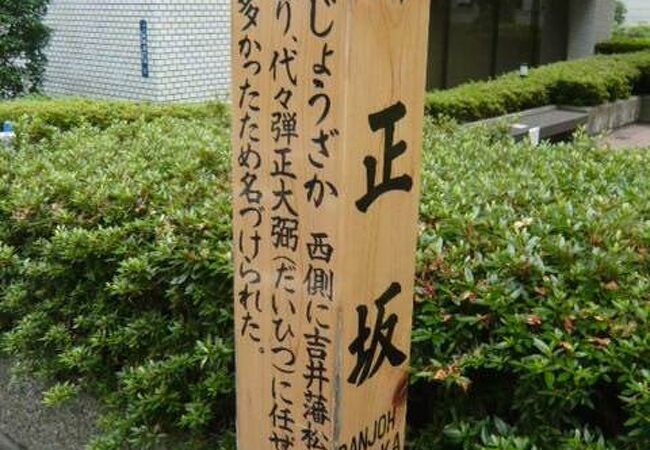 正坂
DANJOH
KA
じょうざか 西側に吉井藩松
り、代々弾正大弼(だいひつ)に任ぜ
多かったため名づけられた。